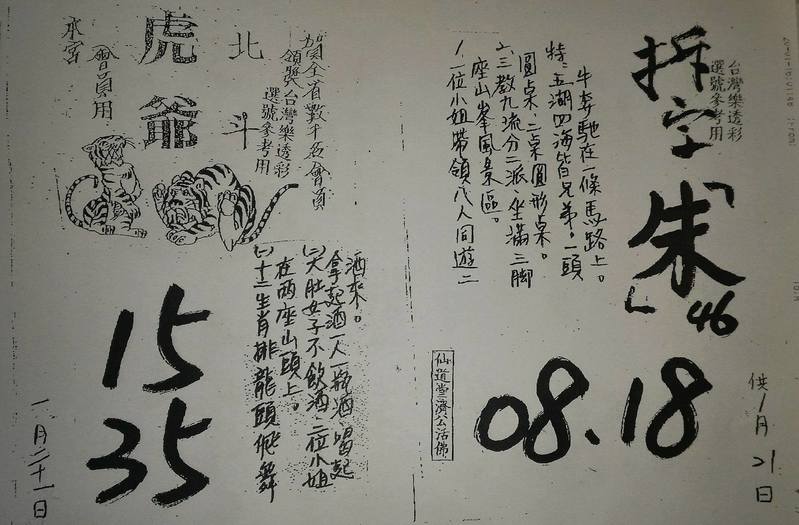 台灣樂透彩
選號參考用
拆字「朱」46
1.一位小姐帶領八人同遊二
座山峯風景區。
2.三教九流分二派坐滿三脚
圓桌、二桌圓形桌。
特:五湖四海皆兄弟。一頭
牛奔馳在一條馬路上。
仙道堂濟公活佛
08、18
供1月21日
賀全省數千名會員
領獎台灣樂透彩
選號參考用
北斗
虎爺
會員用
(一)十二生肖排龍頭飛舞
在两座山頭上。
(二)大肚女子不飲酒、二位小姐
拿起酒一人一瓶酒、喝起
酒來。
15
35
一月二十一日